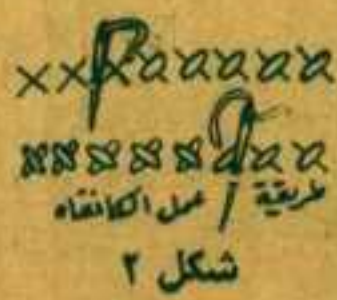 طريقة عمل الكانفاه
شكل ٢